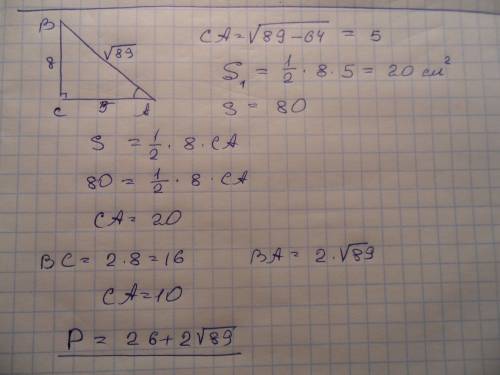 B
8
√89
C
5
A
CA = √89-64 = 5
S₁ = 1/2 · 8 · 5 = 20 см²
S = 80
S = 1/2 · 8 · CA
80 = 1/2 · 8 · CA
CA = 20
BC = 2·8 = 16
BA = 2·√89
CA = 10
P = 26+2√89